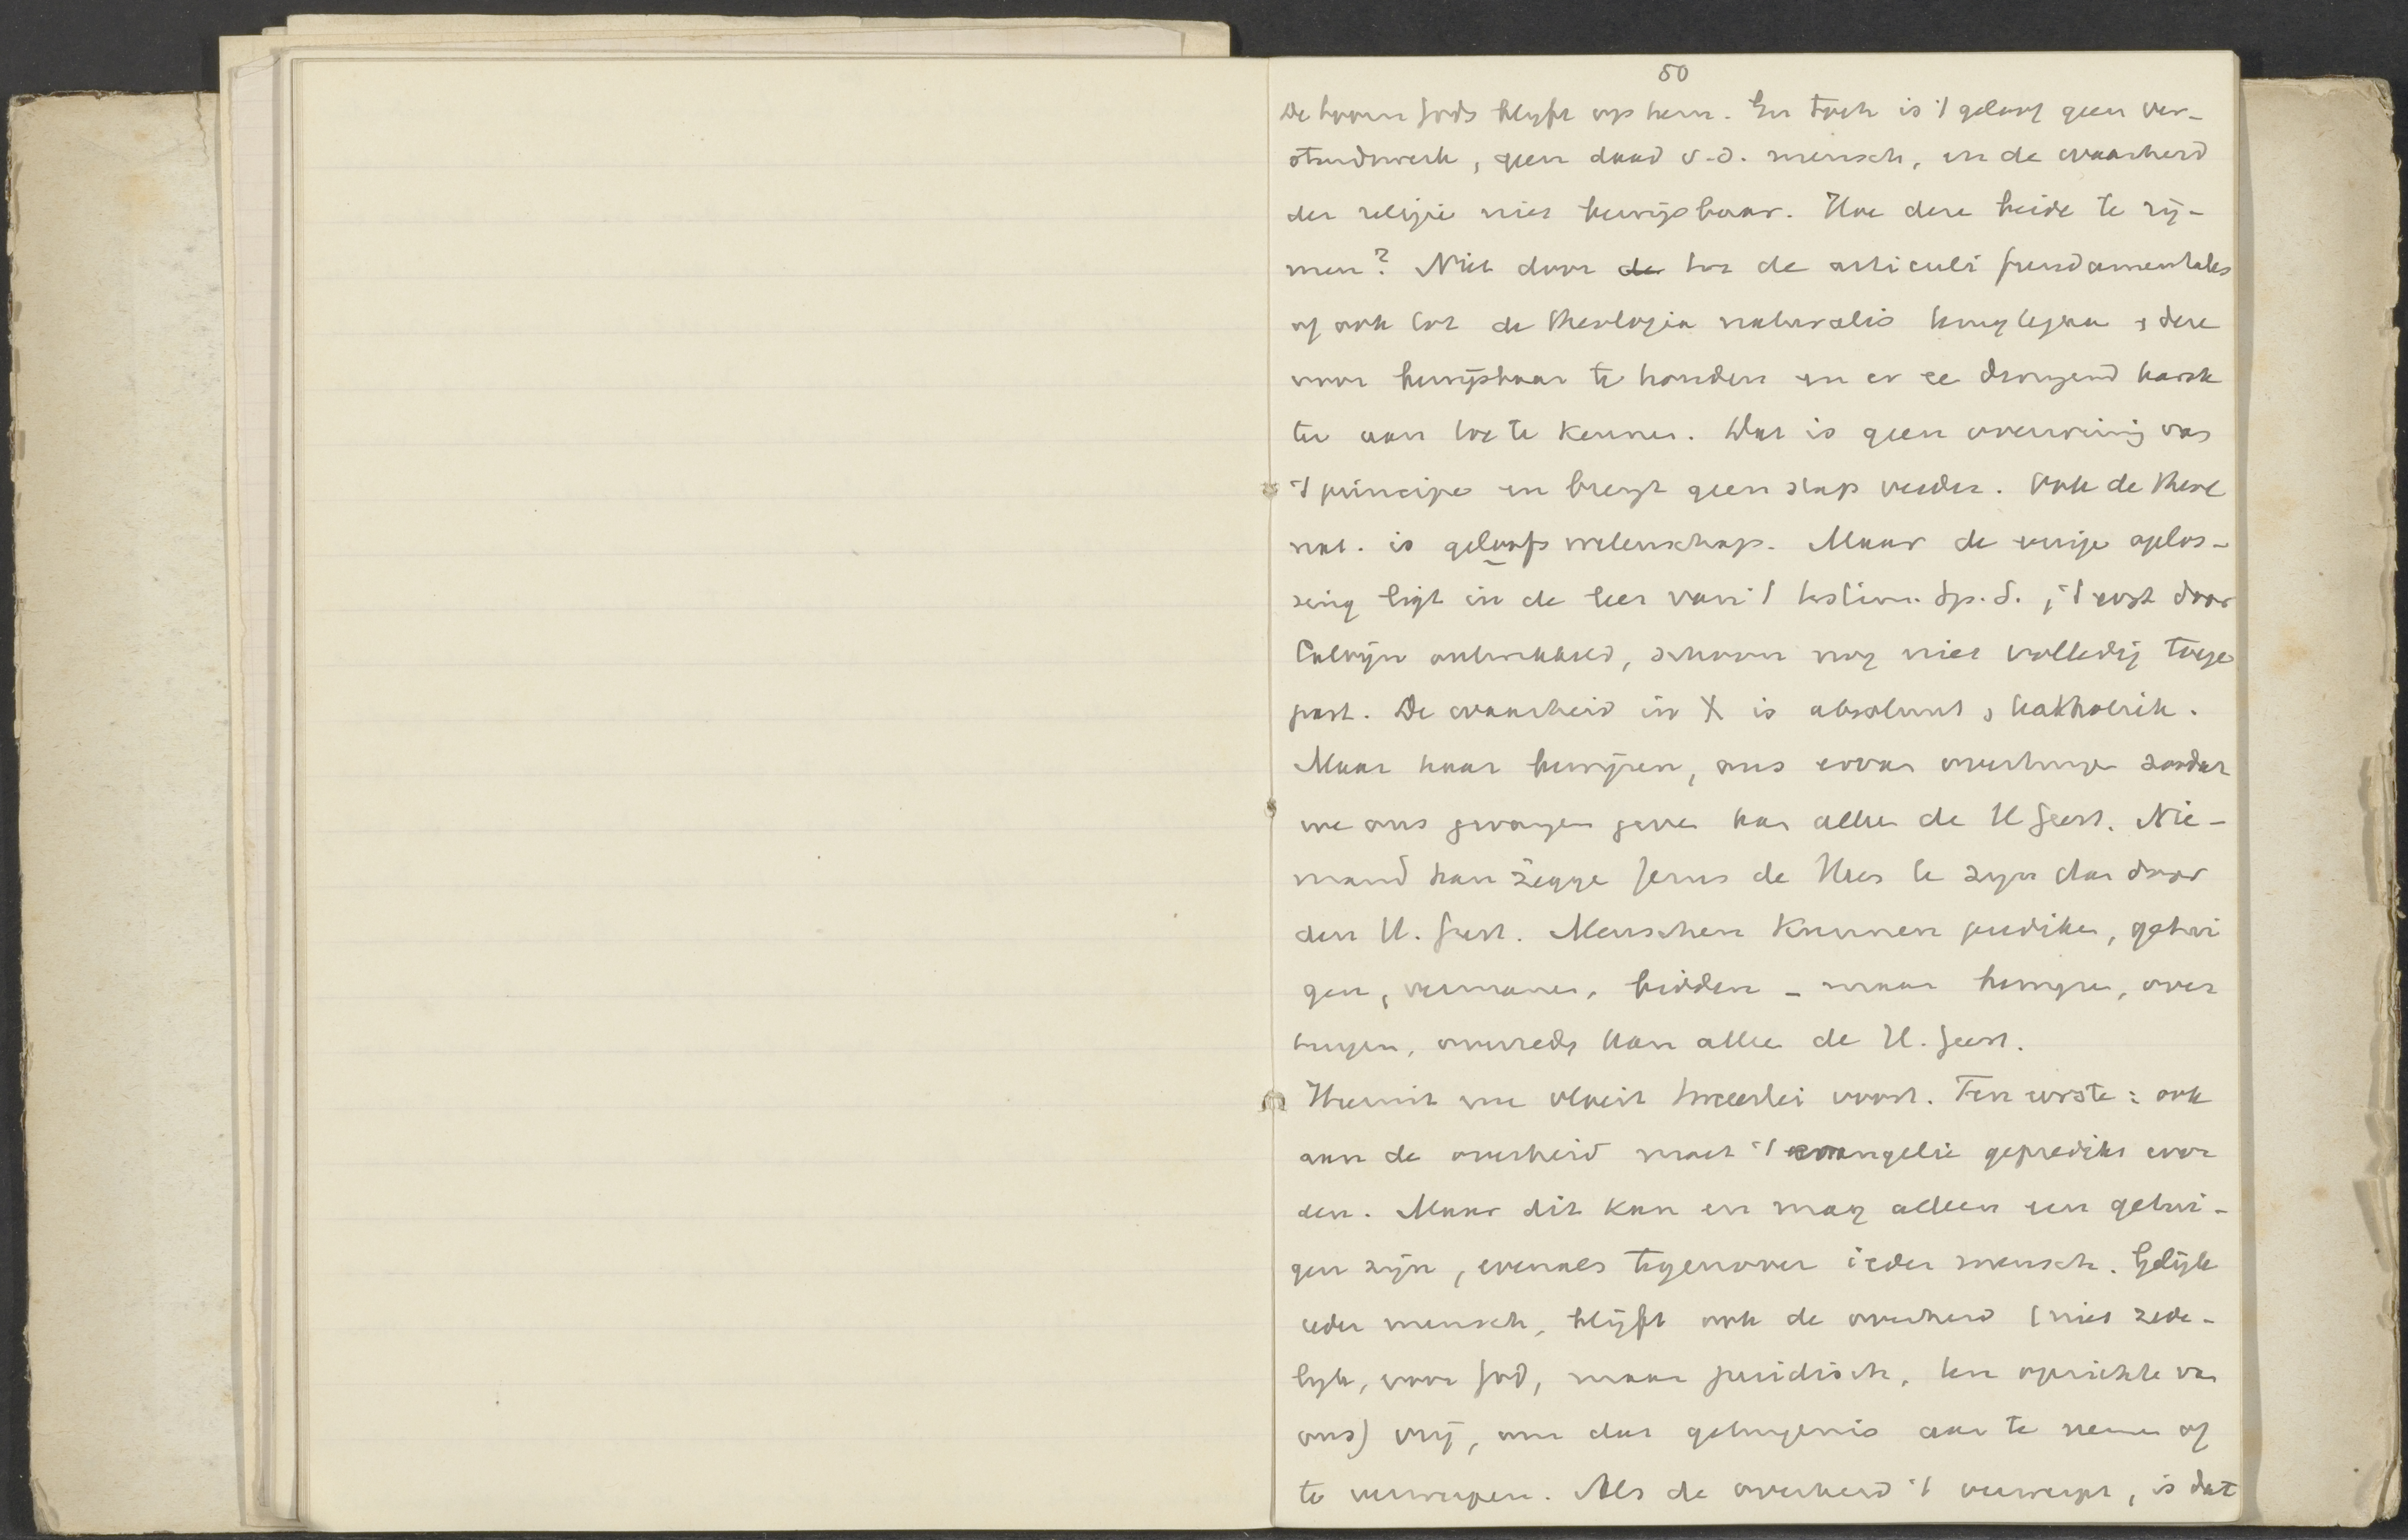 50
De toorn Gods blijft op hem. En toch is 't geloof geen ver-
standswerk, geen daad v.d. mensch, en de waarheid
der religie niet bewijsbaar. Hoe deze beide te rij-
men? Niet door de tot de articuli fundamentales
of ook tot de theologia naturalis terug te gaan, deze
voor bewijsbaar te houden en er ee dwingend karak
ter aan toe te kennen. Dat is geen overwinnig van
't principe en brengt geen stap verder. Ook de theol
nat. is geloofs wetenschap. Maar de eenige oplos-
sing ligt in de leer van 't testim. Sp. S., 't eerst door
Calvijn ontwikkeld, schoon nog niet volledig toege
past. De waarheid in X is absoluut, katholiek.
Maar haar bewijzen, ons ervan overtuige zoodat
we ons gevangen geve kan allee de H Geest. Nie-
mand kan zegge Jezus de Heer te zijn dan door
den H. Geest. Menschen kunnen predike, getui
gen, vermanen, bidden - maar bewijze, over
tuigen, overrede kan allee de H. Geest.
Hieruit nu vloeit tweeërlei voort. Ten eerste: ook
aan de overheid moet 't evangelie gepredikt wor
den. Maar dit kan en mag alleen een getui-
gen zijn, evenals tegenover ieder mensch. Gelijk
ieder mensch, blijft ook de overheid (niet zede-
lijk, voor God, maar juridisch, ten opzichte van
ons) vrij, om dat getuigenis aan te neme of
te verwerpen. Als de overheid 't verwerpt, is dat